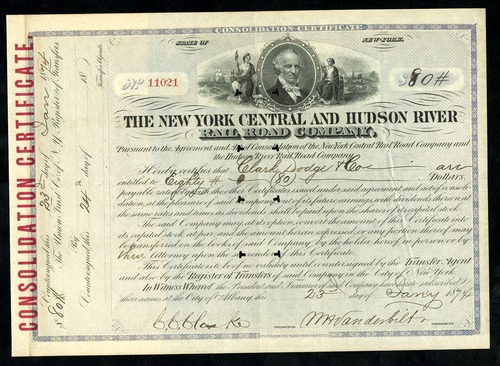 CONSOLIDATION CERTIFICATE
STATE OF NEW-YORK.
No. 11021
$80#
THE NEW YORK CENTRAL AND HUDSON RIVER
RAIL ROAD COMPANY,
Pursuant to the Agreement and Act of Consolidation of the New York Central Rail Road Company and
the Hudson River Rail Road Company
Hereby certifies that Clark Dodge & Co are
entitled to Eighty # (80) Dollars,
payable ratably with the other Certificates issued under said agreement and act of consoli-
dation, at the pleasure of said Company, out of its future earnings, with dividends thereon at
the same rates and times as dividends shall be paid upon the shares of its capital stock.
The said Company may, at its option, convert the amount of this Certificate into
its capital stock at par; and the amount herein expressed, or any portion thereof may
be transferred on the books of said Company, by the holder hereof in person or by
their Attorney upon the surrender of this Certificate.
This Certificate to be of no validity until countersigned by the Transfer Agent
and also by the Register of Transfers of said Company in the City of New York.
In Witness Whereof the President and Treasurer of said Company have hereunto subscribed
their names at the City of Albany, this 23d day of Jany 1874
W H Vanderbilt
TREASURER.
PRESIDENT.
CONSOLIDATION CERTIFICATE.
$80#
Countersigned this 23d day of Jan 1874
The Union Trust Co. of N.Y. Register of Transfers
By
Countersigned this 24th day of 18
Transfer Agents